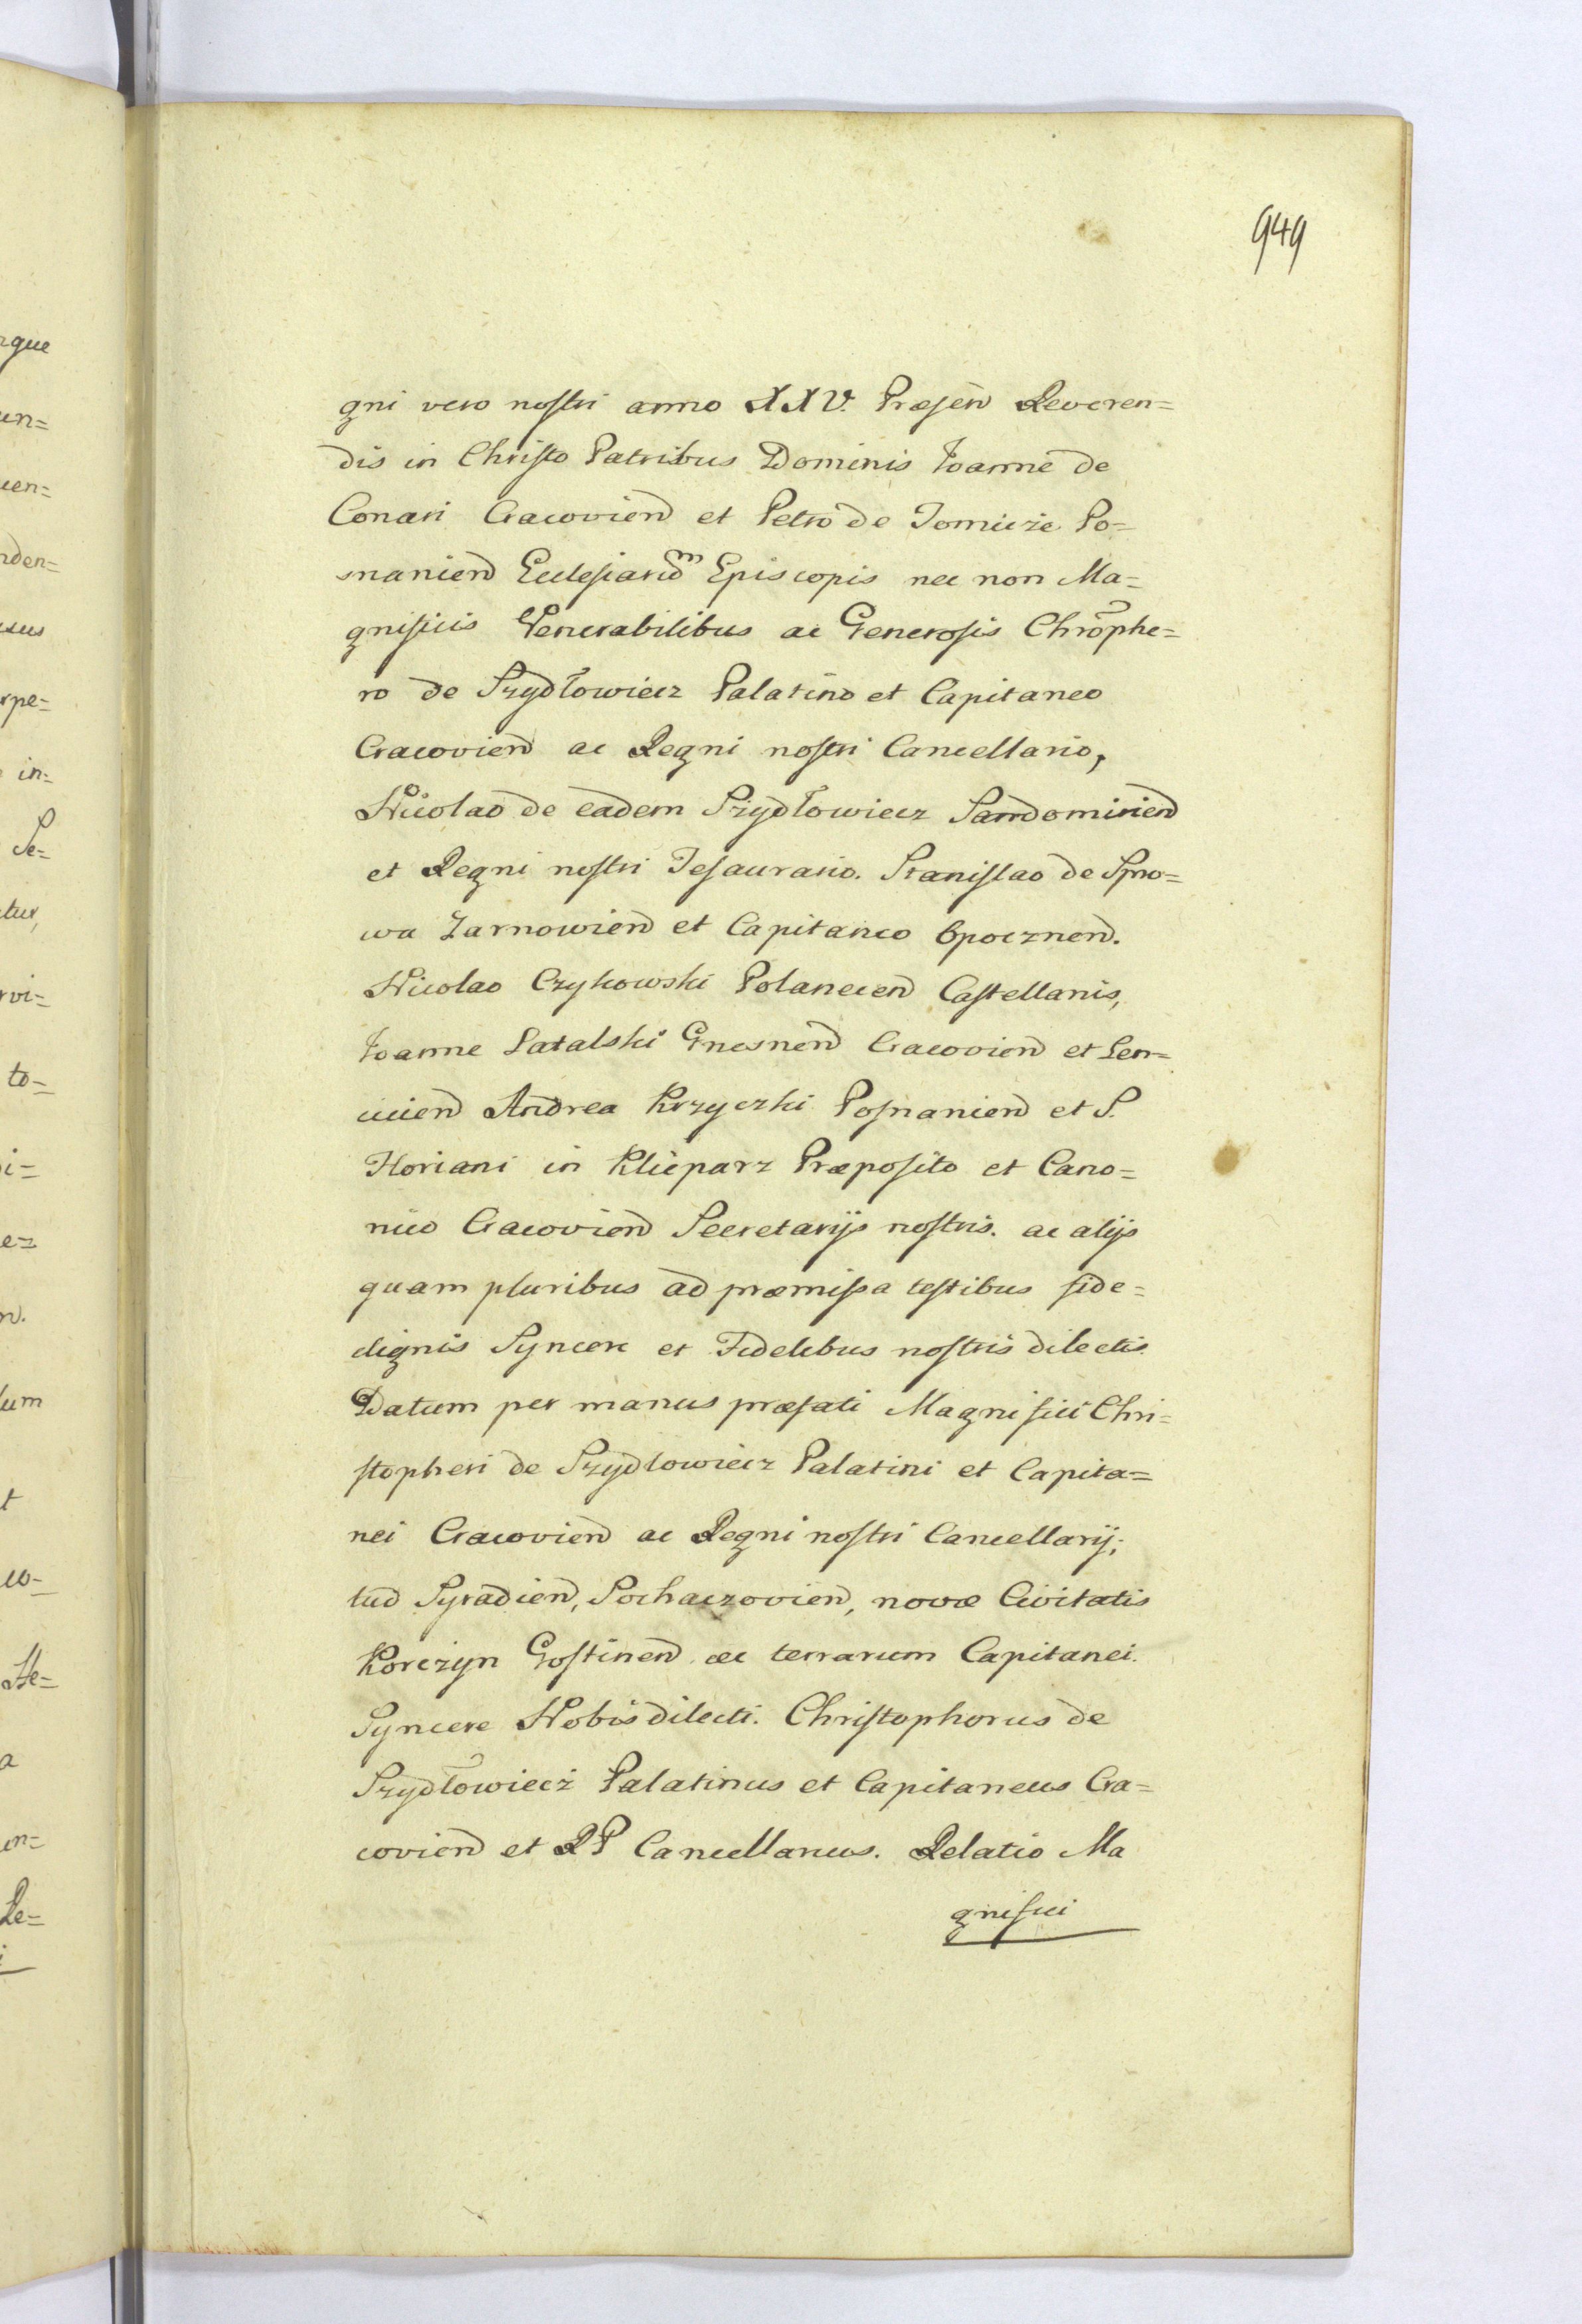 949
gni vero nostri anno XXV. Præsen̄ Reveren=
dis in Christo Patribus Dominis Joanne de
Conari Cracovien̄ et Petro de Tomicze Po=
snanien̄ Ecclesiarum Episcopis nec non Ma=
gnificis Venerabilibus ac Generosis Chrõphe=
ro de Szydłowiecz Palatino et Capitaneo
Cracovien̄ ac Regni nostri Cancellario,
Nicolao de eadem Szydłowiecz Sandomirien̄
et Regni nostri Tesaurario. Stanislao de Spro=
wa Zarnowien̄ et Capitaneo Opocznen̄.
Nicolao Czykowski Polanecen̄ Castellanis,
Joanne Latalski Gnesnen̄ Cracovien̄ et Len=
cicien̄ Andrea Krzyczki Posnanien̄ et S.
Floriani in Klieparz Præposito et Cano=
nico Cracovien̄ Secretarijs nostris. ac alijs
quam pluribus ad præmissa testibus fide=
dignis Syncere et Fidelibus nostris dilectis.
Datum per manus præfati Magnifici Chri=
stopheri de Szydlowiecz Palatini et Capita=
nei Cracovien̄ ac Regni nostri Cancellarij;
tud Syradien̄, Sochaczovien̄, novæ Civitatis
Korczyn Gostinen̄ ac terrarum Capitanei.
Syncere Nobis dilecti. Christophorus de
Szydłowiecz Palatinus et Capitaneus Cra=
covien̄ et RP Cancellarius. Relatio Ma
gnifici